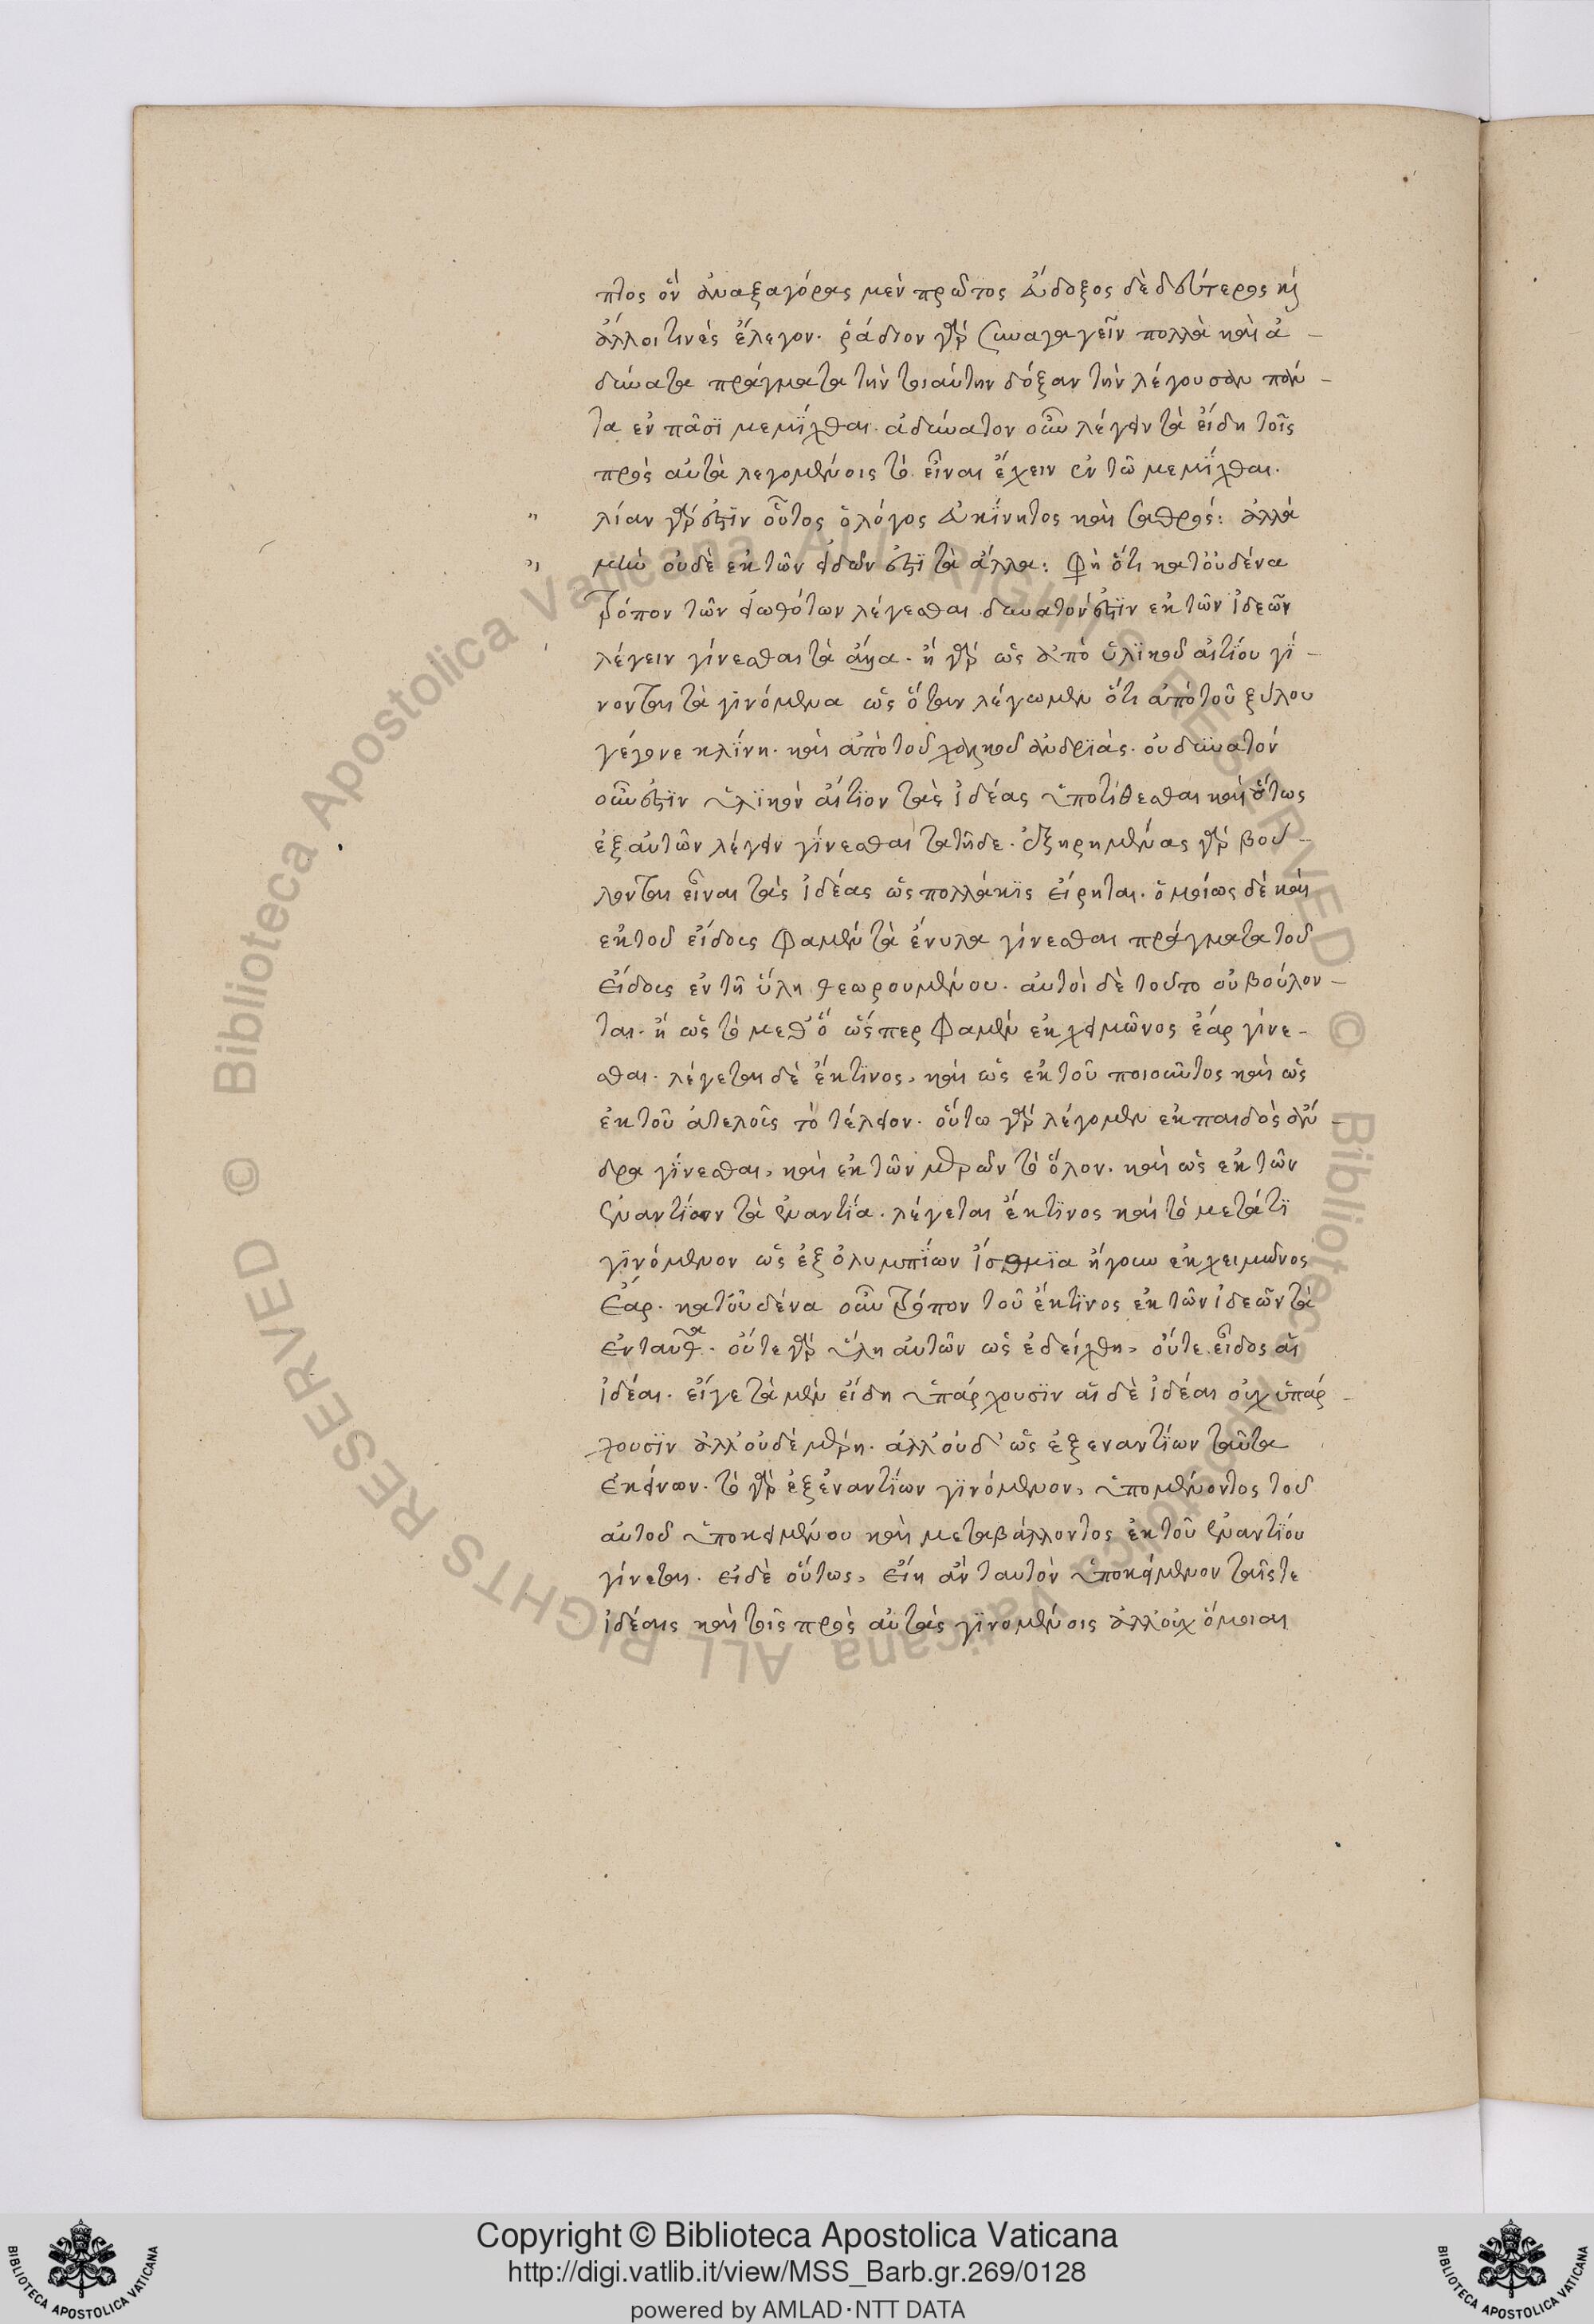 πτος ὃν ἀναξαγόρας μὲν πρῶτος εὔδοξος δὲ δεύτερος καὶ
ἄλλοι τινὲς ἔλεγον. ῥάδιον γὰρ συναγαγεῖν πολλὰ καὶ ἀ-
δύνατα πράγματα τὴν τοιαύτην δόξαν τὴν λέγουσαν πάν-
τα ἐν πᾶσϊ μεμῖχθαι. ἀδύνατον οὖν λέγειν τὰ εἴδη τοῖς
πρὸς αὐτὰ λεγομένοις τὸ εἶναι ἔχειν ἐν τῷ μεμῖχθαι.
" λίαν γάρ ἐστϊν οὗτος ὁ λόγος εὐκίνητος καὶ σαθρός: ἀλλὰ
" μὴν οὐδὲ ἐκ τῶν εἰδῶν ἐστϊ τὰ ἄλλα: φὴ ὅτι κατ' οὐδένα
τρόπον τῶν εἰωθότων λέγεσθαι δυνατόν ἐστϊν ἐκ τῶν ἰδεῶν
λέγειν γίνεσθαι τὰ ἄλλα. ἢ γὰρ ὡς ἀπὸ ὑλϊκοῦ αἰτΐου γΐ-
νονται τὰ γϊνόμενα ὡς ὅταν λέγωμεν ὅτι ἀπὸ τοῦ ξύλου
γέγονε κλΐνη. καὶ ἀπὸ τοῦ χαλκοῦ ἀνδρϊὰς. οὐ δυνατόν
οὖν ἐστϊν ὑλϊκὸν αἴτϊον τὰς ἰδέας ὑποτίθεσθαι καὶ οὕτως
ἐξ αὐτῶν λέγειν γΐνεσθαι τὰ τῆδε. ἐξηρημένας γὰρ βού-
λονται εἶναι τὰς ἰδέας ὡς πολλάκϊς εἴρηται. ὁμοίως δὲ καὶ
ἐκ τοῦ εἴδους φαμὲν τὰ ἔνυλα γίνεσθαι πράγματα τοῦ
εἴδους ἐν τῇ ὕλη θεωρουμένου. αὐτοὶ δὲ τοῦτο οὐ βούλον-
ται. ἢ ὡς τὸ μεθ' ὃ ὥσπερ φαμὲν ἐκ χειμῶνος ἔαρ γίνε-
σθαι. λέγεται δὲ ἔκ τϊνος, καὶ ὡς ἐκ τοῦ ποιοῦντος καὶ ὡς
ἐκ τοῦ ἀτελοῦς τὸ τέλειον. οὕτω γὰρ λέγομεν ἐκ παιδὸς ἄν-
δρα γΐνεσθαι, καὶ ἐκ τῶν μερῶν τὸ ὅλον. καὶ ὡς ἐκ τῶν
ἐναντΐων τὰ ἐναντΐα. λέγεται ἔκ τϊνος καὶ τὸ μετά τϊ
γϊνόμενον ὡς ἐξ ὀλυμπΐων ἴσθμϊα ἤγουν ἐκ χειμῶνος
ἔαρ. κατ' οὐδένα οὖν τρόπον τοῦ ἔκ τϊνος ἐκ τῶν ἰδεῶν τὰ
ἐνταῦθα. οὔτε γὰρ ὕλη αὐτῶν ὡς ἐδείχθη, οὔτε εἶδος αἱ
ἰδέαι. εἴγε τὰ μὲν εἴδη ὑπάρχουσϊν αἱ δὲ ἰδέαι οὐχ ὑπάρ-
χουσϊν ἀλλ' οὐδὲ μέρη. ἀλλ' οὐδ' ὡς ἐξ ἐναντΐων ταῦτα
ἐκείνων. τὸ γὰρ ἐξ ἐναντΐων γϊνόμενον, ὑπομένοντος τοῦ
αὐτοῦ ὑποκειμένου καὶ μεταβάλλοντος ἐκ τοῦ ἐναντΐου
γίνεται. εἰ δὲ οὕτως, εἴη ἂν ταυτὸν ὑποκείμενον ταῖς τε
ἰδέαις καὶ τοῖς πρὸς αὐτὰς γϊνομένοις ἀλλ' οὐχ ὅμοιαι
Copyright © Biblioteca Apostolica Vaticana
http://digi.vatlib.it/view/MSS_Barb.gr.269/0128
powered by AMLAD·NTT DATA